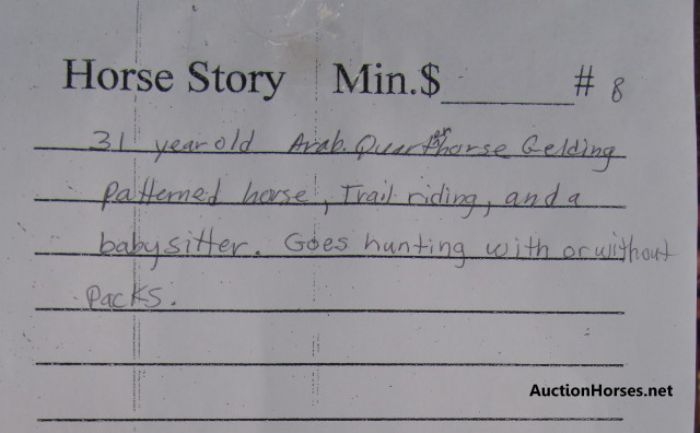 Horse Story Min.$______ # 8
31 year old Arab. Quarterhorse Gelding
patterned horse, Trail riding, and a
babysitter. Goes hunting with or without
packs.
AuctionHorses.net